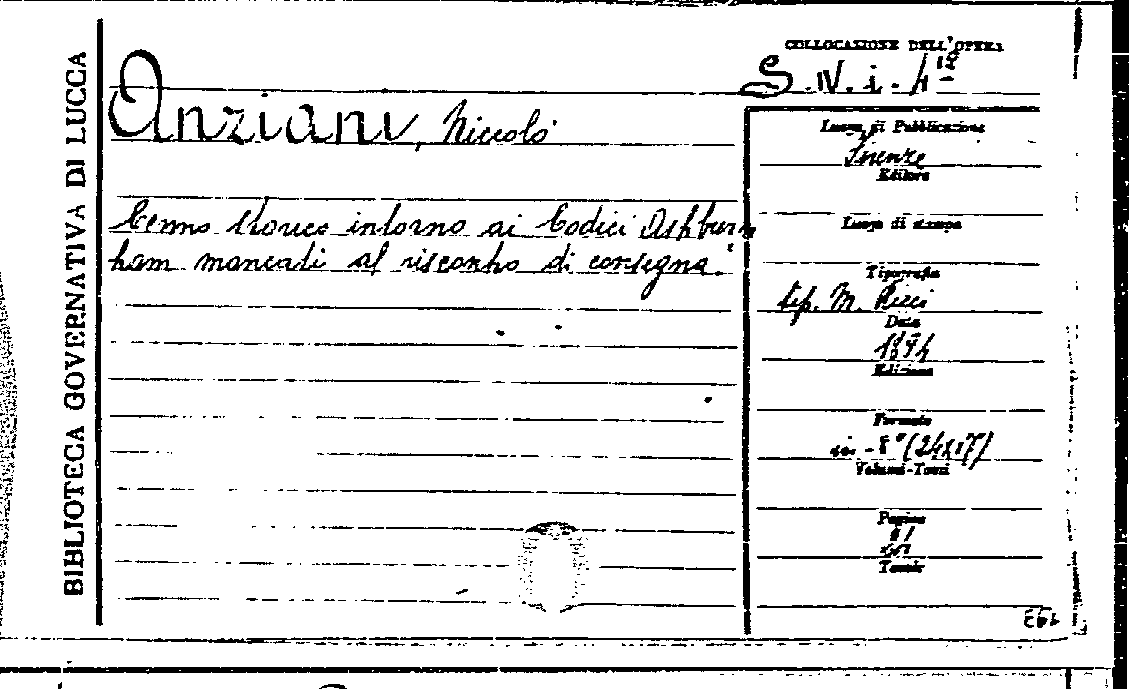 BIBLIOTECA GOVERNATIVA DI LUCCA
COLLOCAZIONE DELL'OPERA
S. IV. i. 4
Anziani, Niccolò
Cenno storico intorno ai Codici Ashburn
ham mancati al riscontro di consegna.
Luogo di Pubblicazione
Firenze
Editore
Luogo di stampa
Tipografia
tip. M. Ricci
Data
Edizione
Formato
in - 8° (24x17)
Volumi-Tomi
Pagine
Tavole